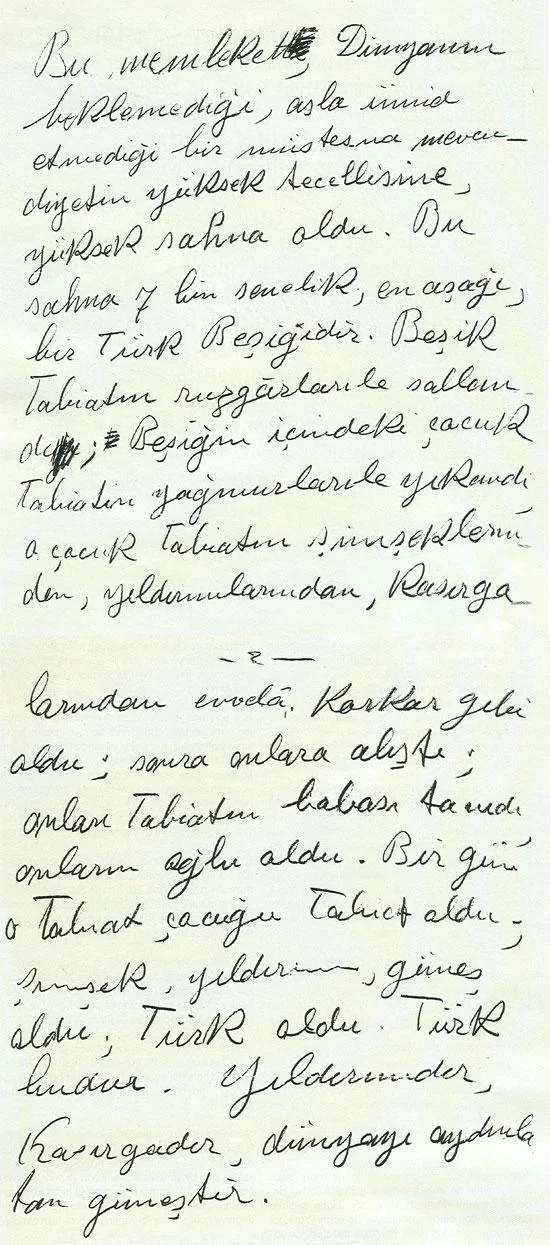 Bu memlekette, Dünyanın
beklemediği, asla ümid
etmediği bir müstesna mevcu-
diyetin yüksek tecellisine,
yüksek sahna oldu. Bu
sahna 7 bin senelik, en aşağı,
bir Türk Beşiğidir. Beşik
Tabiatın ruzgârlarile sallan
dı; Beşiğin içindeki çocuk
Tabiatın yağmurlarile yıkandı,
o çocuk Tabiatın şimşeklerin-
den, yıldırımlarından, Kasırga-
- 2 -
larından evvelâ, Korkar gibi
oldu; sonra onlara alıştı;
onları Tabiatın babası tanıdı,
onların oğlu oldu. Bir gün
o Tabiat çocuğu Tabiat oldu;
şimşek, yıldırım, güneş
oldu; Türk oldu. Türk
budur. Yıldırımdır,
Kasırgadır, dünyayı aydınla
tan güneştir.